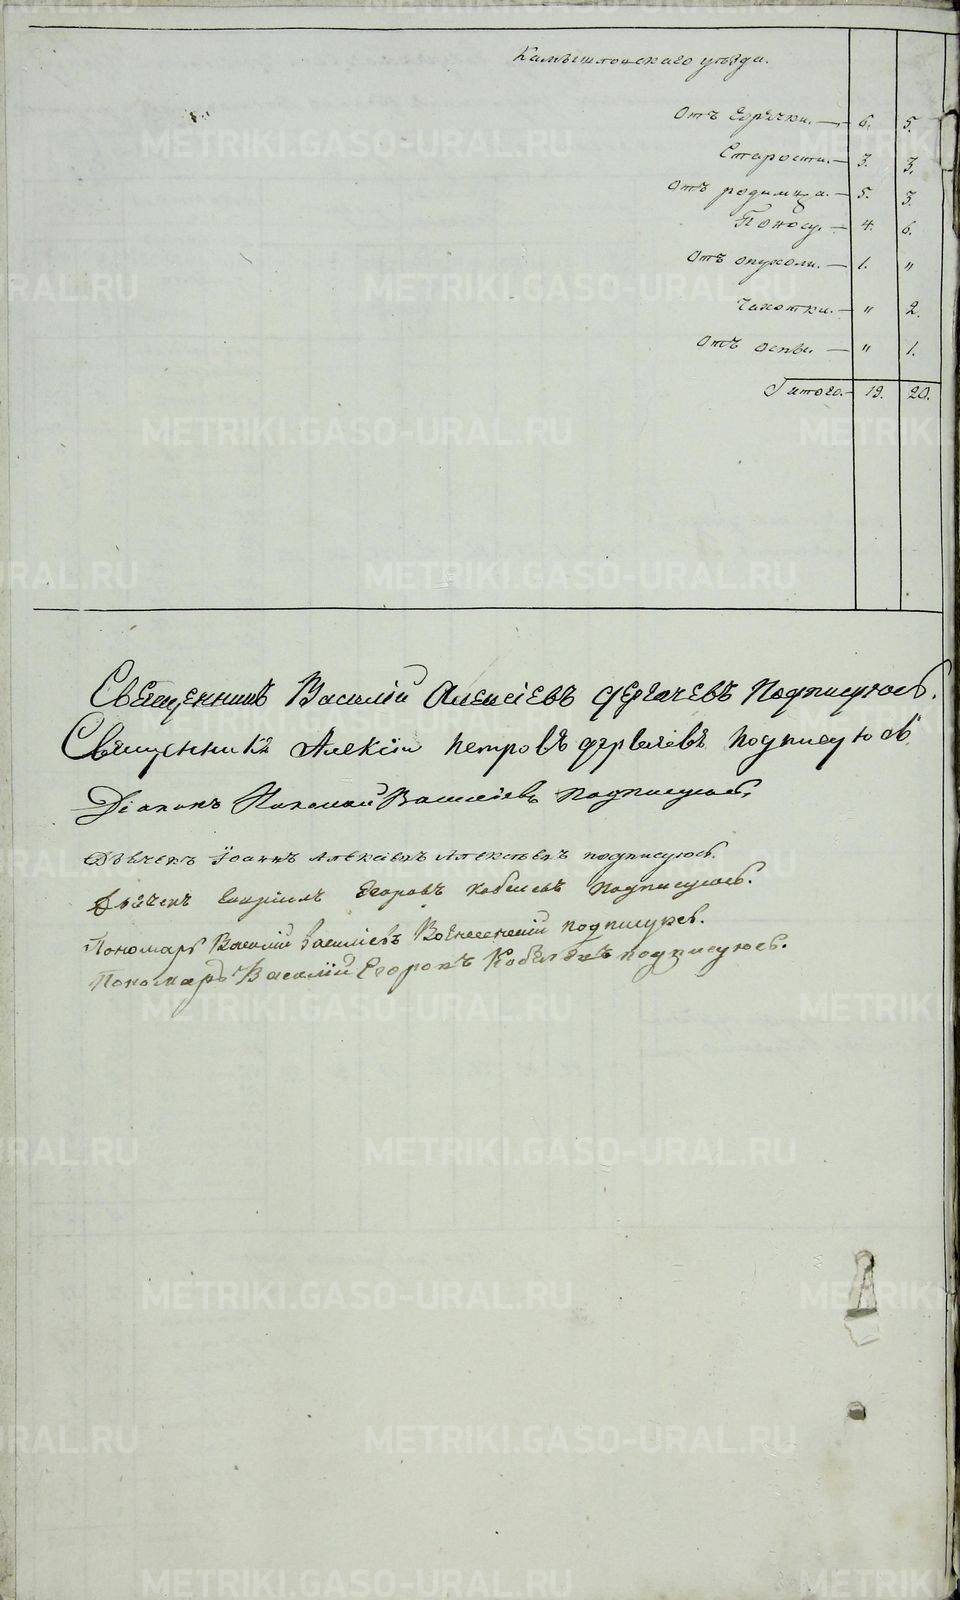 Камышловскаго уѣзда.
Отъ Горячки. — 6. 5.
Старости. — 3. 3.
Отъ родимца. — 5. 3.
Поносу. — 4. 6.
Отъ опухоли. — 1. "
Чахотки. — " 2.
Отъ оспы. — " 1.
Итого. — 19. 20.
Священникъ Василій Алексіевъ Дергачевъ Подписуюсь.
Священникъ Алексій Петровъ Дергачевъ подписуюсь
Діаконъ Николай Василіевъ подписуюсь,
Дьячекъ Іоаннъ Алексіевъ подписуюсь.
Дьячекъ Гавріилъ Егоровъ Кобелевъ подписуюсь.
Пономарь Василій Василіевъ Вознесенскій подписуюсь.
Пономарь Василій Егоровъ Кобелевъ подписуюсь.
METRIKI.GASO-URAL.RU